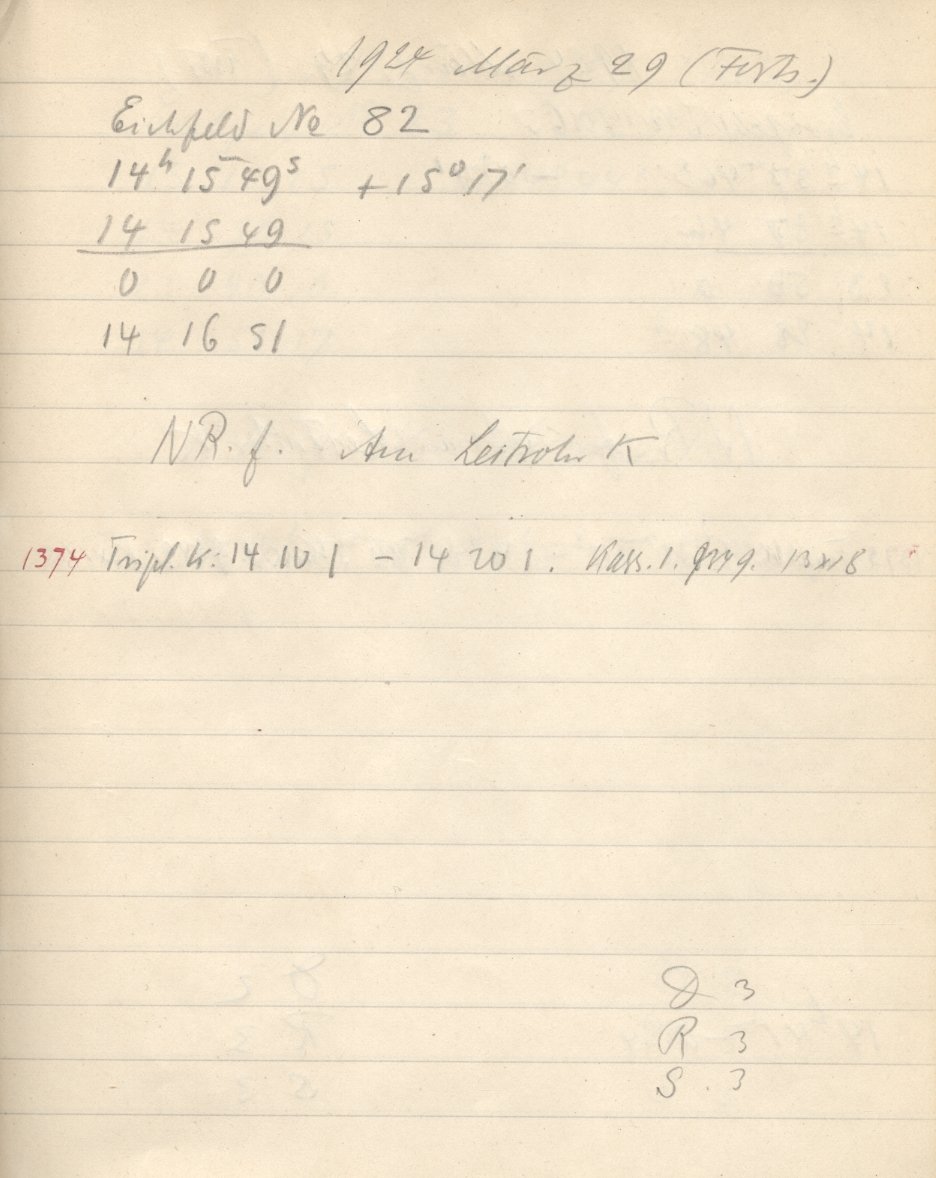 1924 März 29 (Forts.)
Eichfeld No 82
14ʰ 15ᵐ 49ˢ + 15⁰ 17'
14 15 49
0 0 0
14 16 51
NR. f. Am Leitrohr K
1374 Tripl. K: 14 10 1 – 14 20 1. Kass. 1. 13x18
D 3
R 3
S. 3